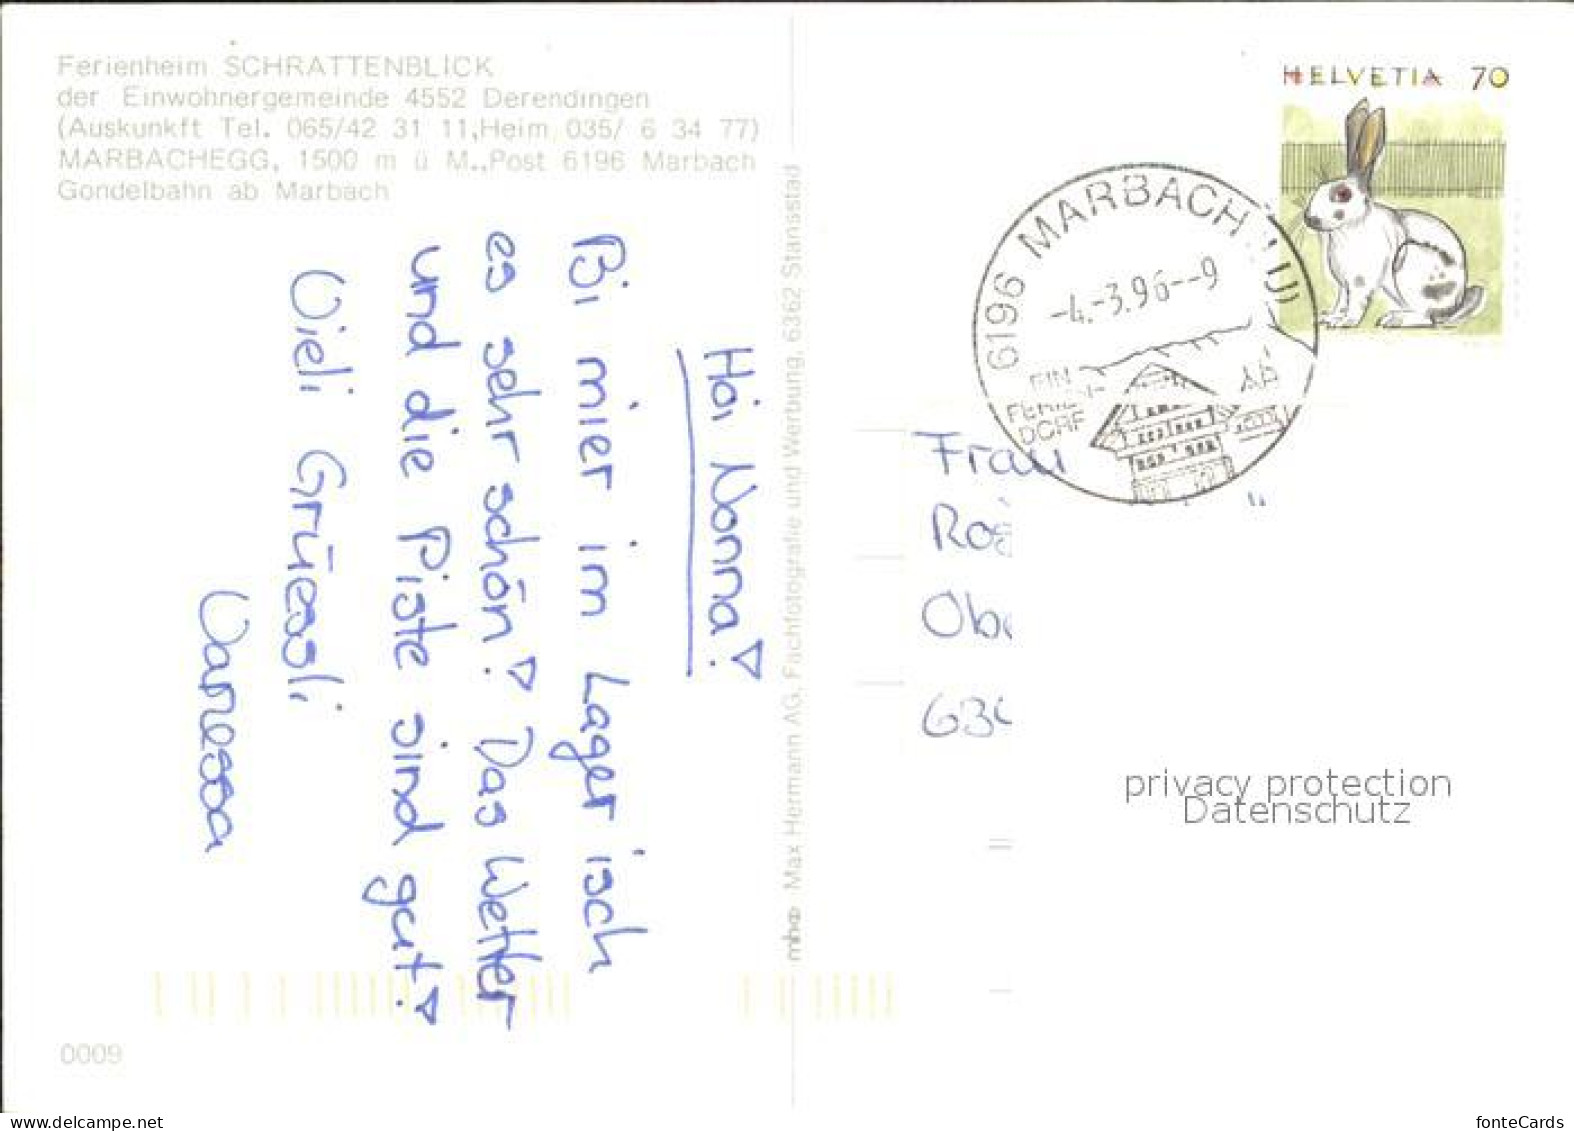 Ferienheim SCHRATTENBLICK
der Einwohnergemeinde 4552 Derendingen
(Auskunkft Tel. 065/42 31 11,Heim 035/ 6 34 77)
MARBACHEGG, 1500 m ü M.,Post 6196 Marbach
Gondelbahn ab Marbach
Hoi Nonna!
Bi mier im Lager isch
es sehr schön! Das Wetter
und die Piste sind gut!
Vieli Grüessli
Vanessa
0009
mhs Max Hermann AG, Fachfotografie und Werbung, 6362 Stansstad
HELVETIA 70
6196 MARBACH
-4.-3.96--9
EIN
DORF
Frau
privacy protection
Datenschutz
www.delcampe.net
fonteCards